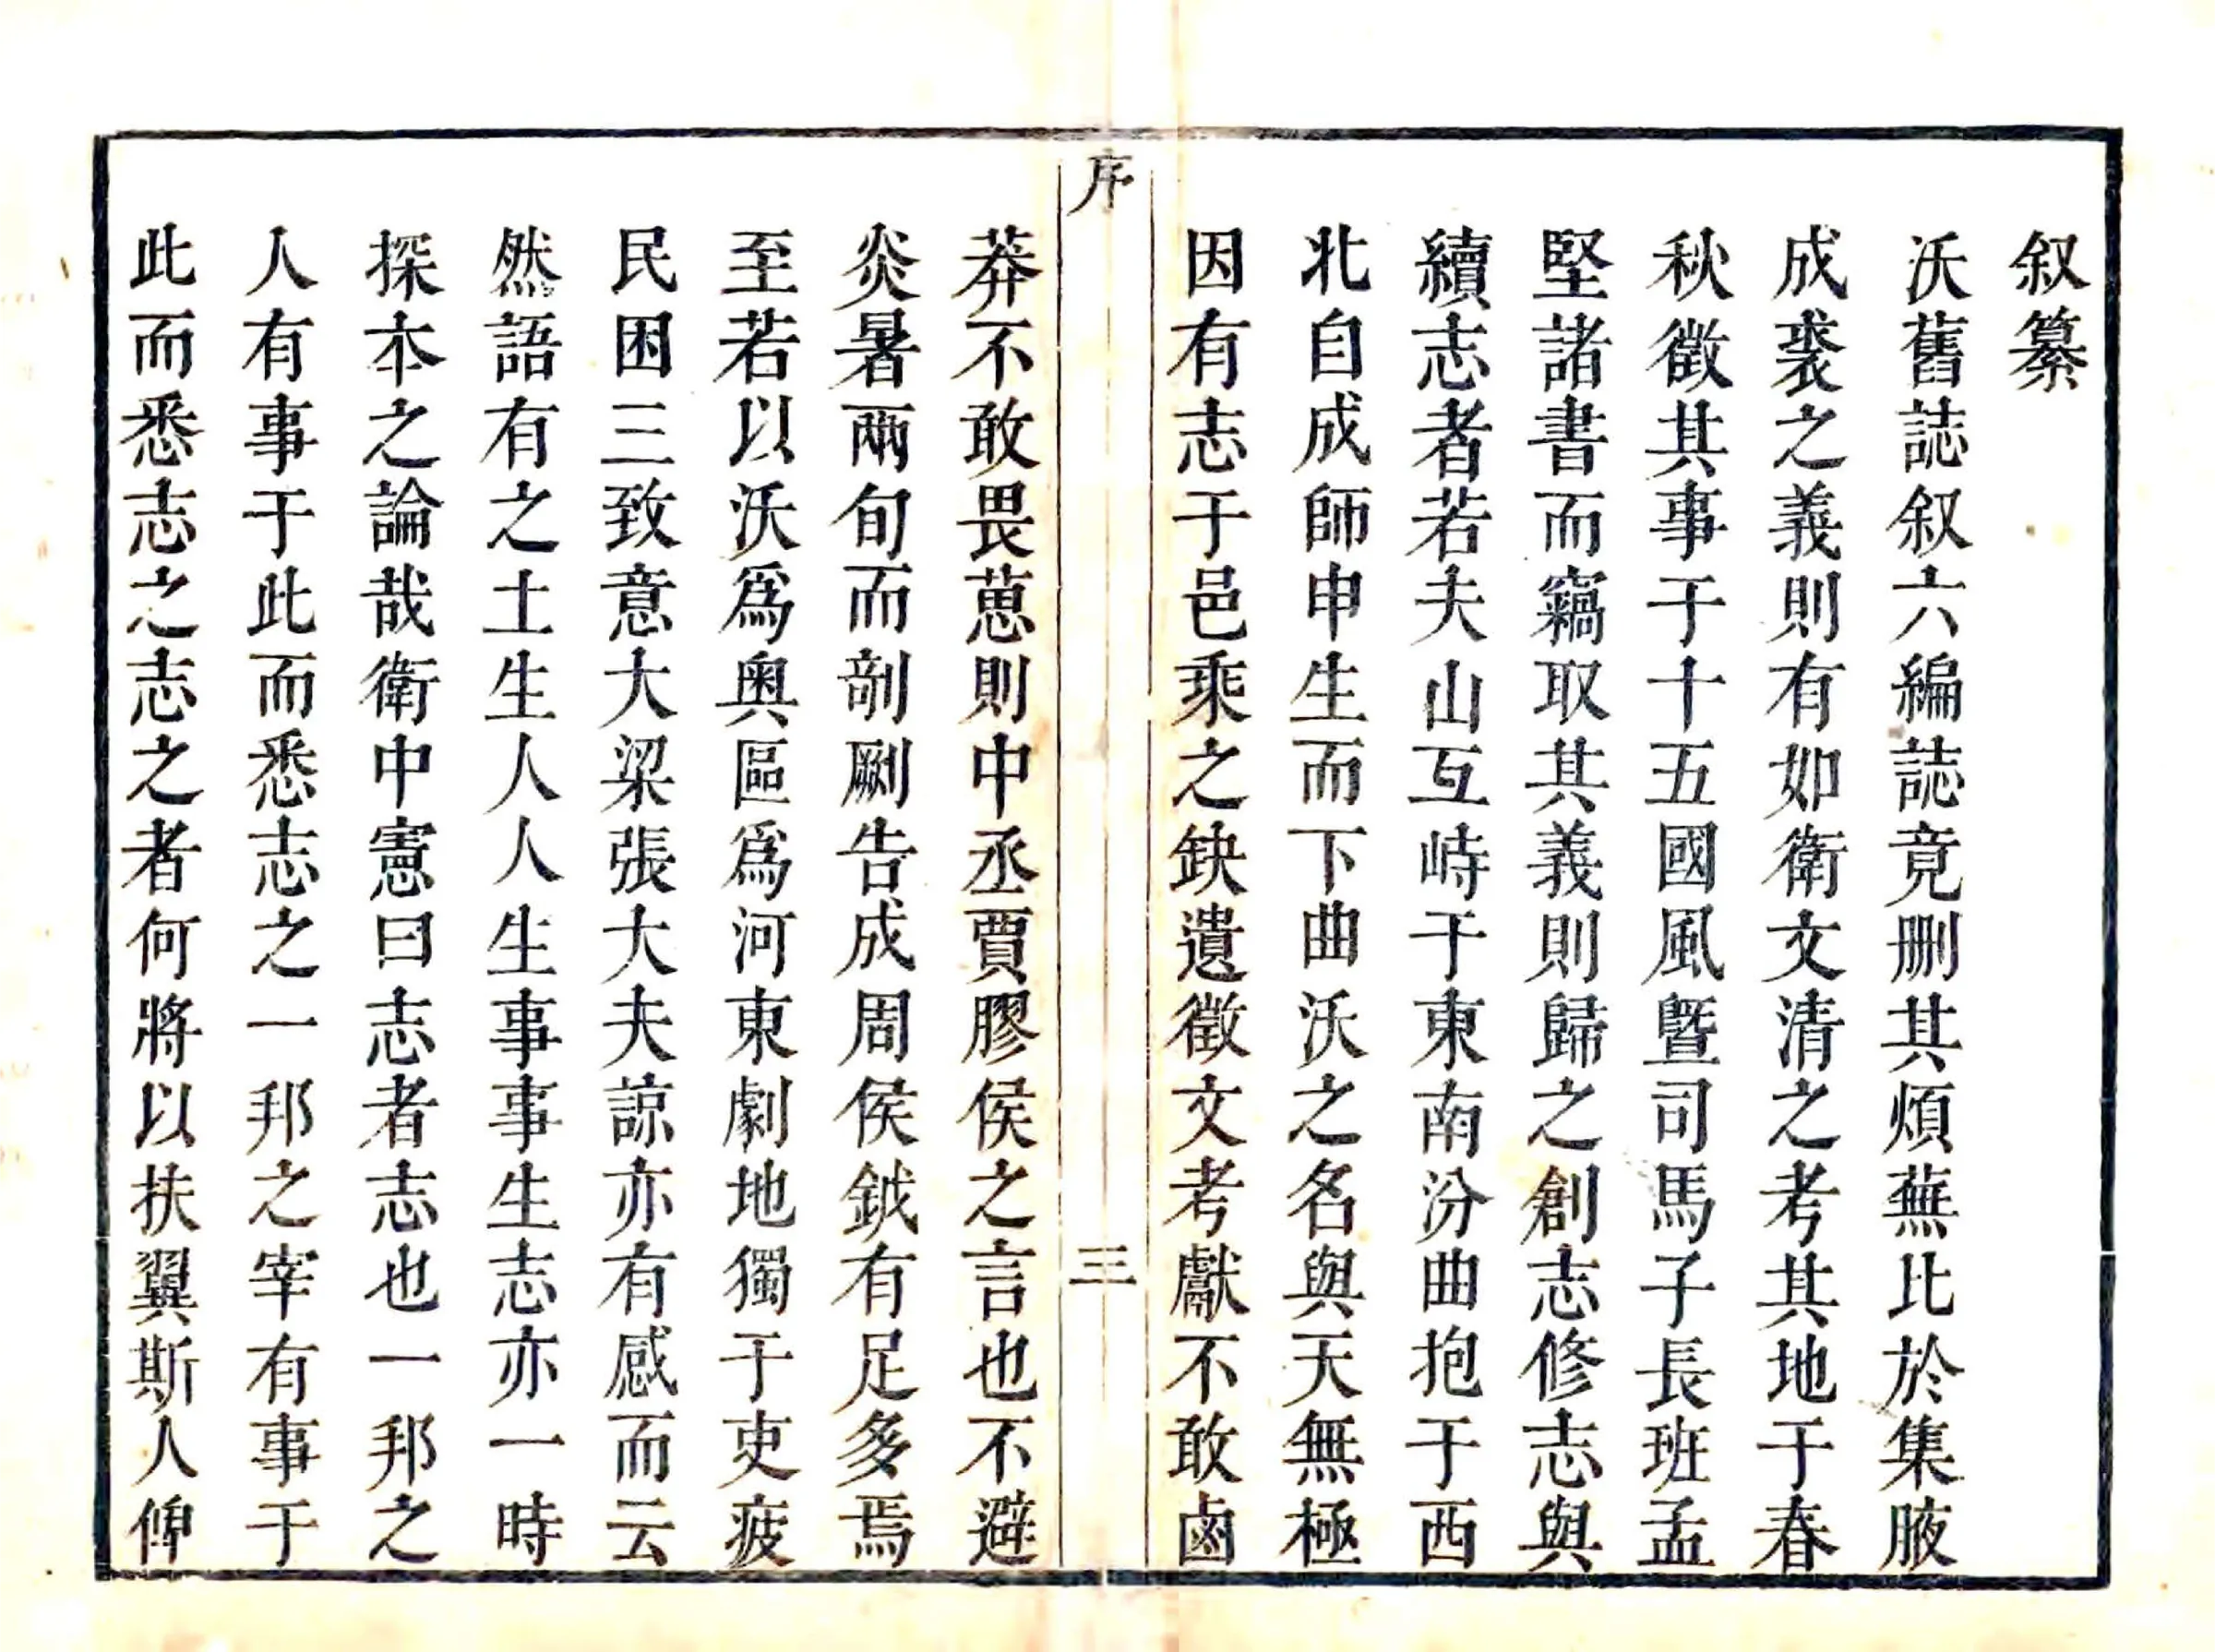 叙纂
沃舊誌叙六編誌竟删其煩蕪比於集腋
成裘之義則有如衛文清之考其地于春
秋徵其事于十五國風曁司馬子長班孟
堅諸書而竊取其義則歸之創志修志與
續志者若夫山互峙于東南汾曲抱于西
北自成師申生而下曲沃之名與天無極
因有志于邑乘之缺遺徵文考獻不敢鹵
序
三
莽不敢畏葸則中丞賈膠侯之言也不避
炎暑兩旬而剞劂告成周侯鉞有足多焉
至若以沃爲奥區爲河東劇地獨于吏疲
民困三致意大梁張大夫諒亦有感而云
然語有之土生人人生事事生志亦一時
探本之論哉衛中憲曰志者志也一邦之
人有事于此而悉志之一邦之宰有事于
此而悉志之志之者何將以扶翼斯人俾